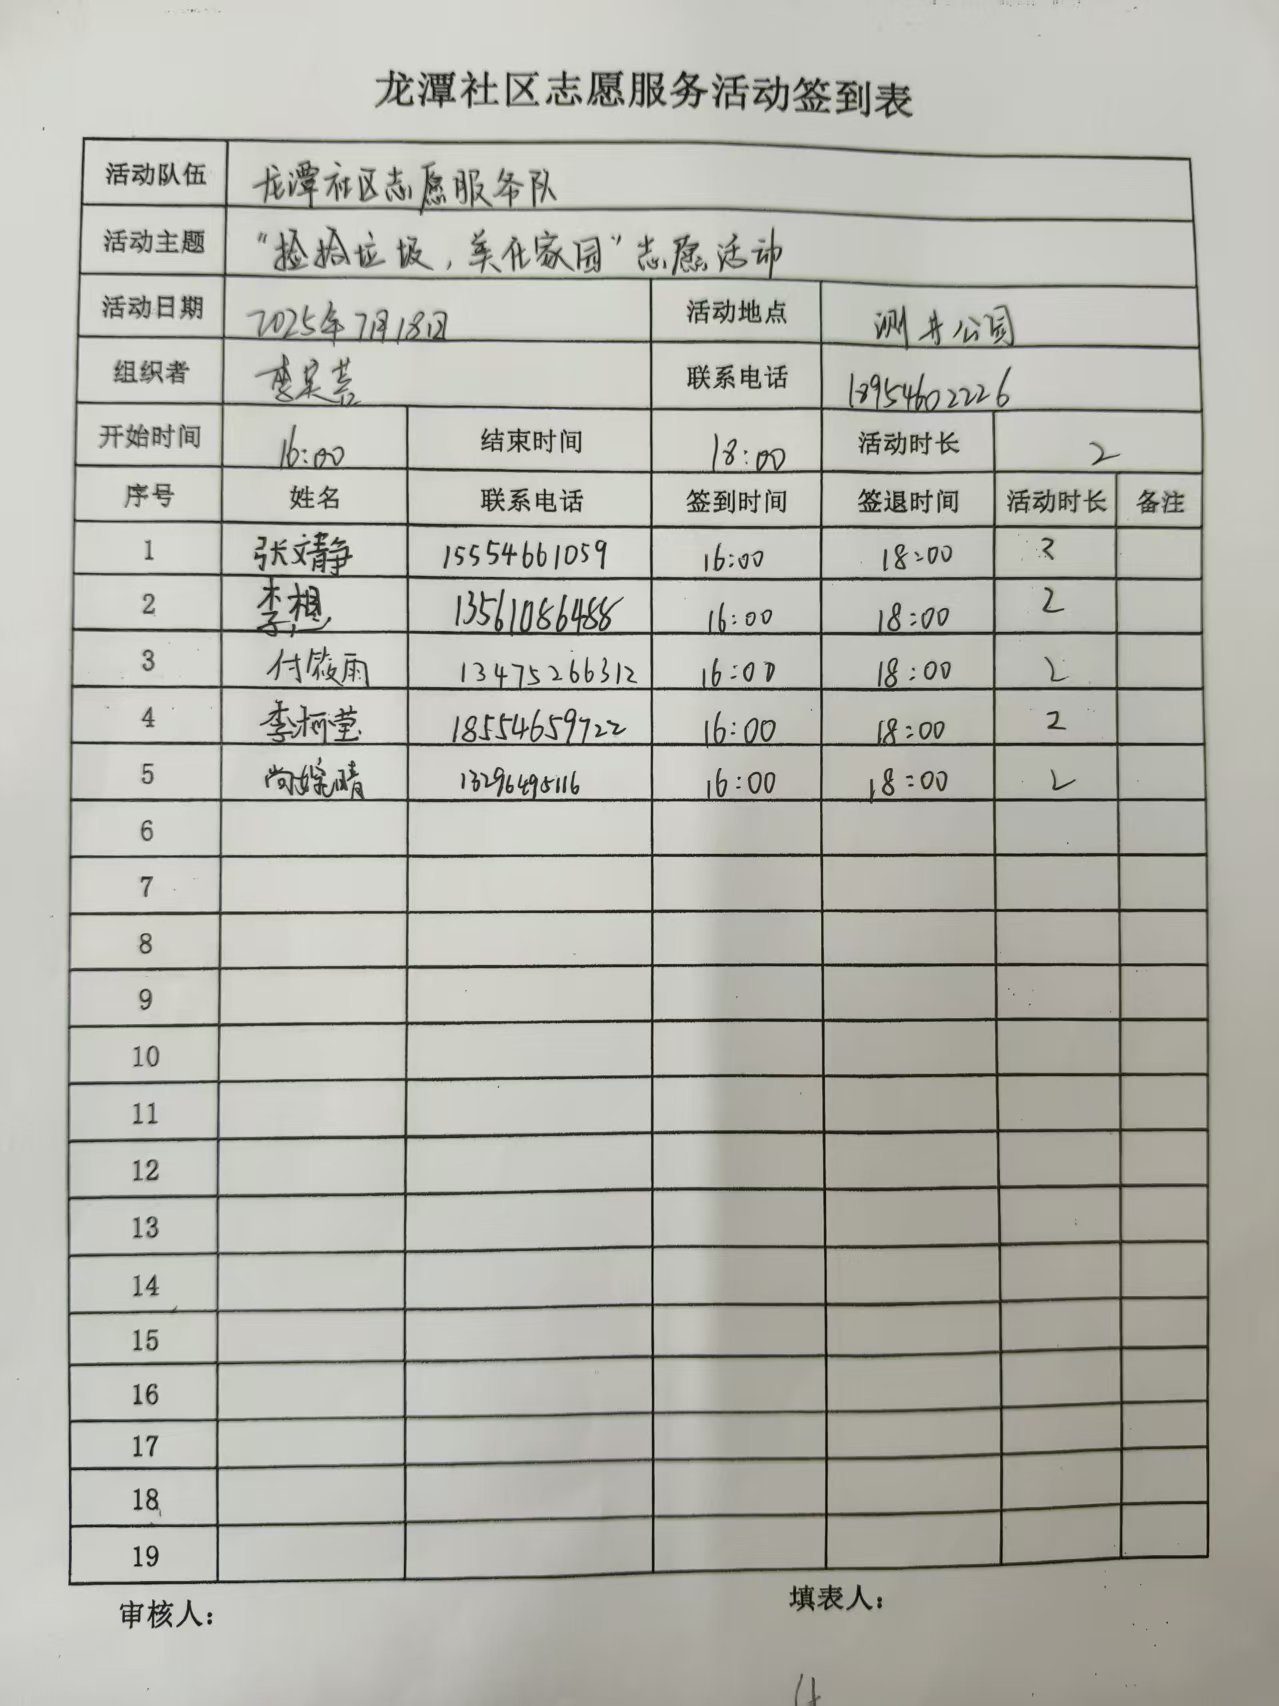 龙潭社区志愿服务活动签到表
活动队伍 龙潭社区志愿服务队
活动主题 “捡拾垃圾，美化家园”志愿活动
活动日期 2025年7月18日 活动地点 测井公园
组织者 李昊芸 联系电话 18954602226
开始时间 16:00 结束时间 18:00 活动时长 2
序号 姓名 联系电话 签到时间 签退时间 活动时长 备注
1 张文静 15554661059 16:00 18:00 2
2 李想 13561086488 16:00 18:00 2
3 付筱雨 13475266312 16:00 18:00 2
4 李柯莹 18554659722 16:00 18:00 2
5 尚婉晴 13296495116 16:00 18:00 2
6
7
8
9
10
11
12
13
14
15
16
17
18
19
审核人： 填表人：